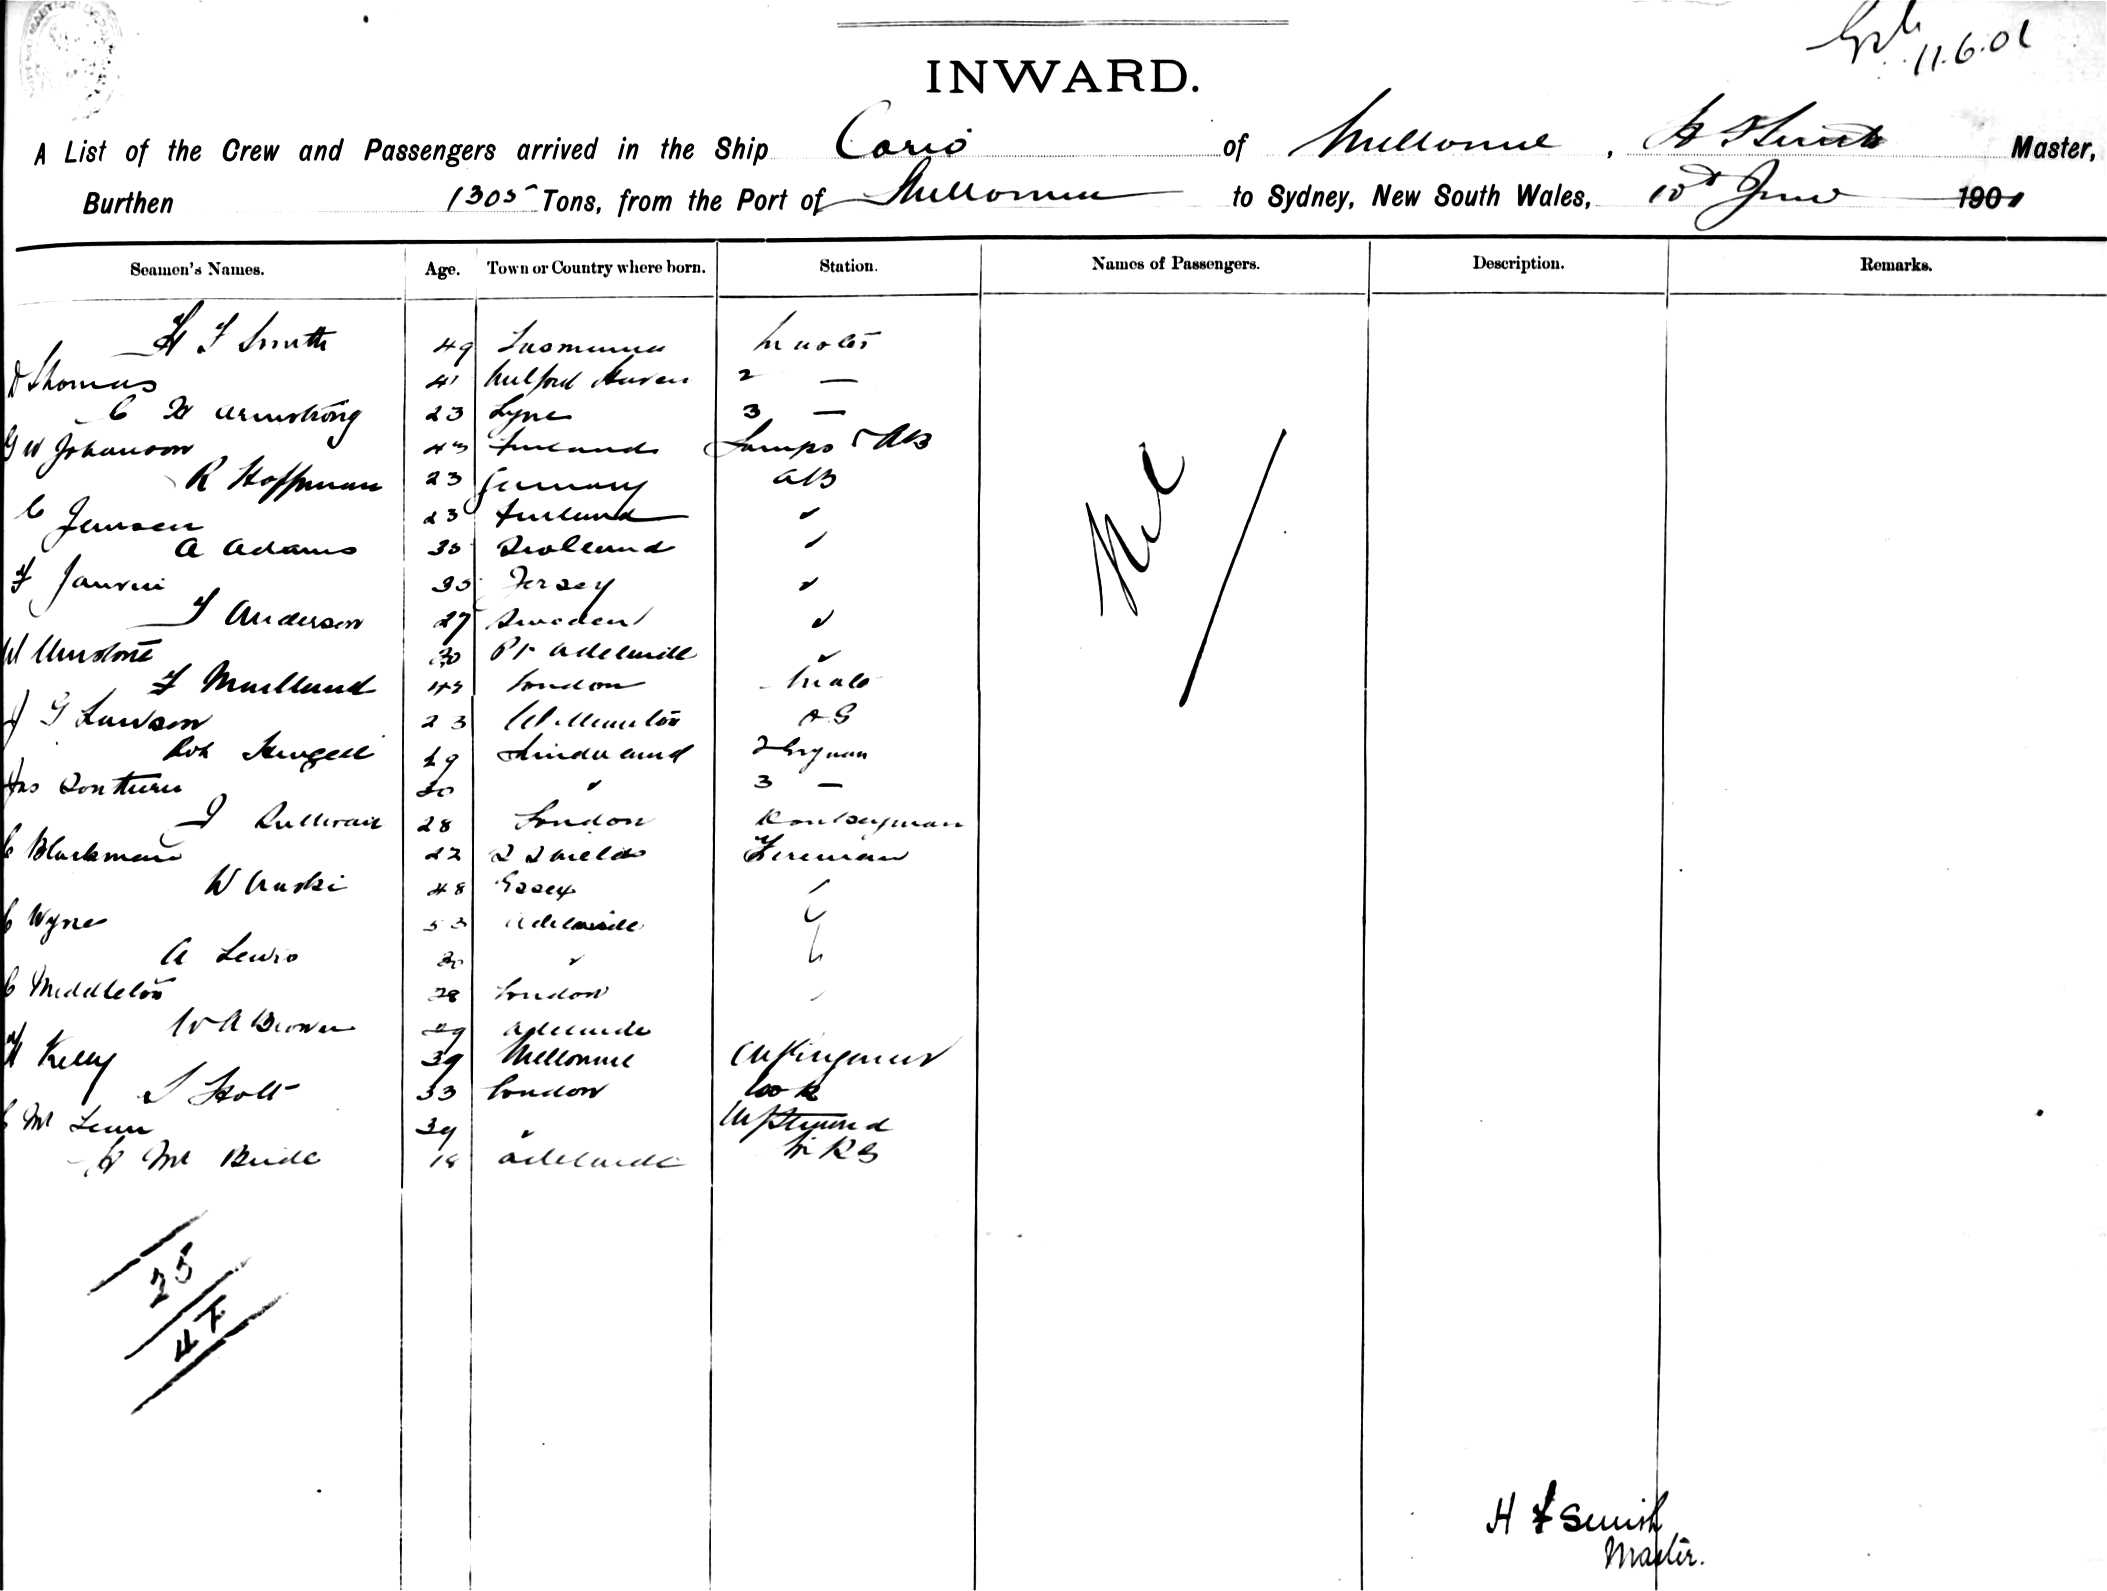 11.6.01
INWARD.
A List of the Crew and Passengers arrived in the Ship Corio of Melbourne, H F Smith Master,
Burthen 1305 Tons, from the Port of Melbourne to Sydney, New South Wales, 10th June 1901
Seamen's Names. Age. Town or Country where born. Station. Names of Passengers. Description. Remarks.
H F Smith 49 Tasmania Master
D Thomas 41 Milford Haven 2 —
C W Armstrong 23 Tyne 3 —
G W Johanson 43 Finland Lamps & AB
R Hoffman 23 Germany AB
C Jensen 23 Finland "
A Adams 35 Scotland "
F Janvrin 35 Jersey "
F Anderson 27 Sweden "
W 30 Pt Adelaide "
F Maitland 49 London Mate
J G Lawson 23 Williamston
Rob 29 Sunderland 2 Engman
Jas Southern 30 " 3 —
J Sullivan 28 London Donkeyman
C Blackman 22 S Shields Fireman
W 48 Essex "
C Wyne 53 Adelaide
A Lewis 30 "
C Middleton 28 London "
W A Brown 29 Adelaide
H Kelly 39 Melbourne
S Holt 33 London Cook
C McLean 39 "
H McBride 18 Adelaide M R S
Nil
25
47
H F Smith
Master.